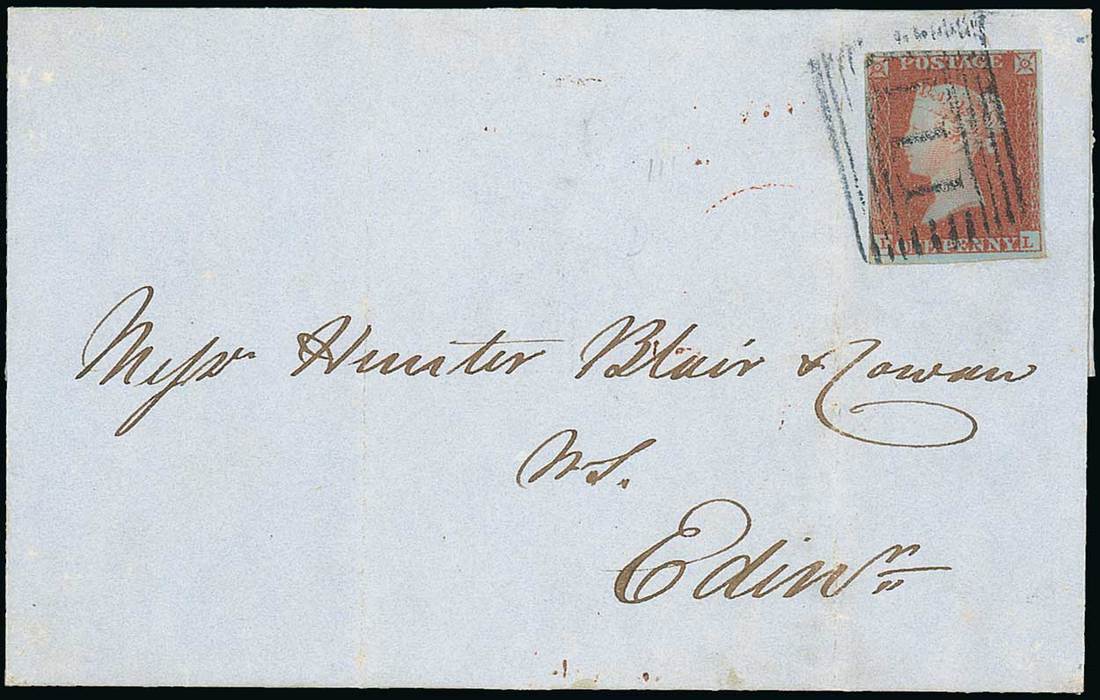 POSTAGE
ONE PENNY
L
111
Messrs Hunter Blair & Cowan
W.S.
Edinr